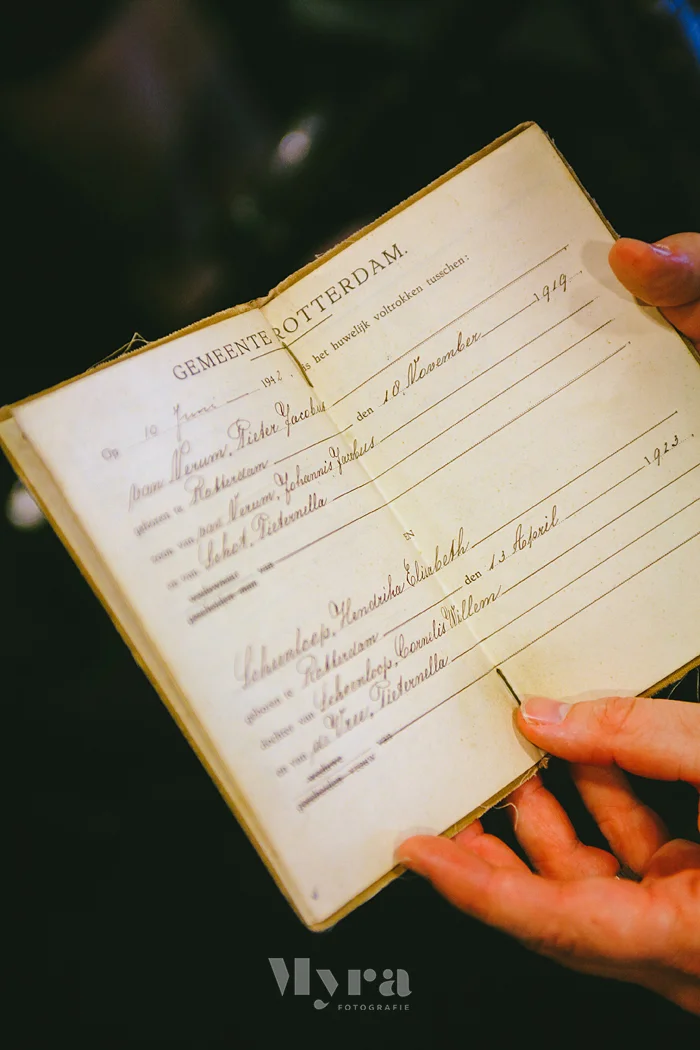 GEMEENTE ROTTERDAM.
Op 10 Juni 1942. is het huwelijk voltrokken tusschen:
van Nerum, Pieter Jacobus
geboren te Rotterdam den 10 November 1919.
zoon van van Nerum, Johannis Jacobus
en van Schot, Pieternella
weduwnaar van
gescheiden man van
EN
Scheenloop, Hendrika Elisabeth
geboren te Rotterdam den 13 April 1923.
dochter van Scheenloop, Cornelis Willem
en van de Vree, Pieternella
weduwe van
gescheiden vrouw
Myra
FOTOGRAFIE